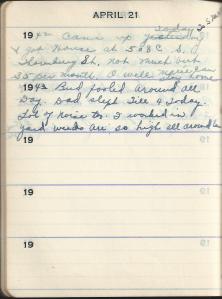 APRIL 21
today
19 42 Came up yesterday
& got House at 508 C. S.
St, not much but
35 per month, O well
home
1943 Bud fooled around all
Day. Dad slept till 4 Today.
Lot of noise to. I worked in
yard weeds are so high all around
19
19
19